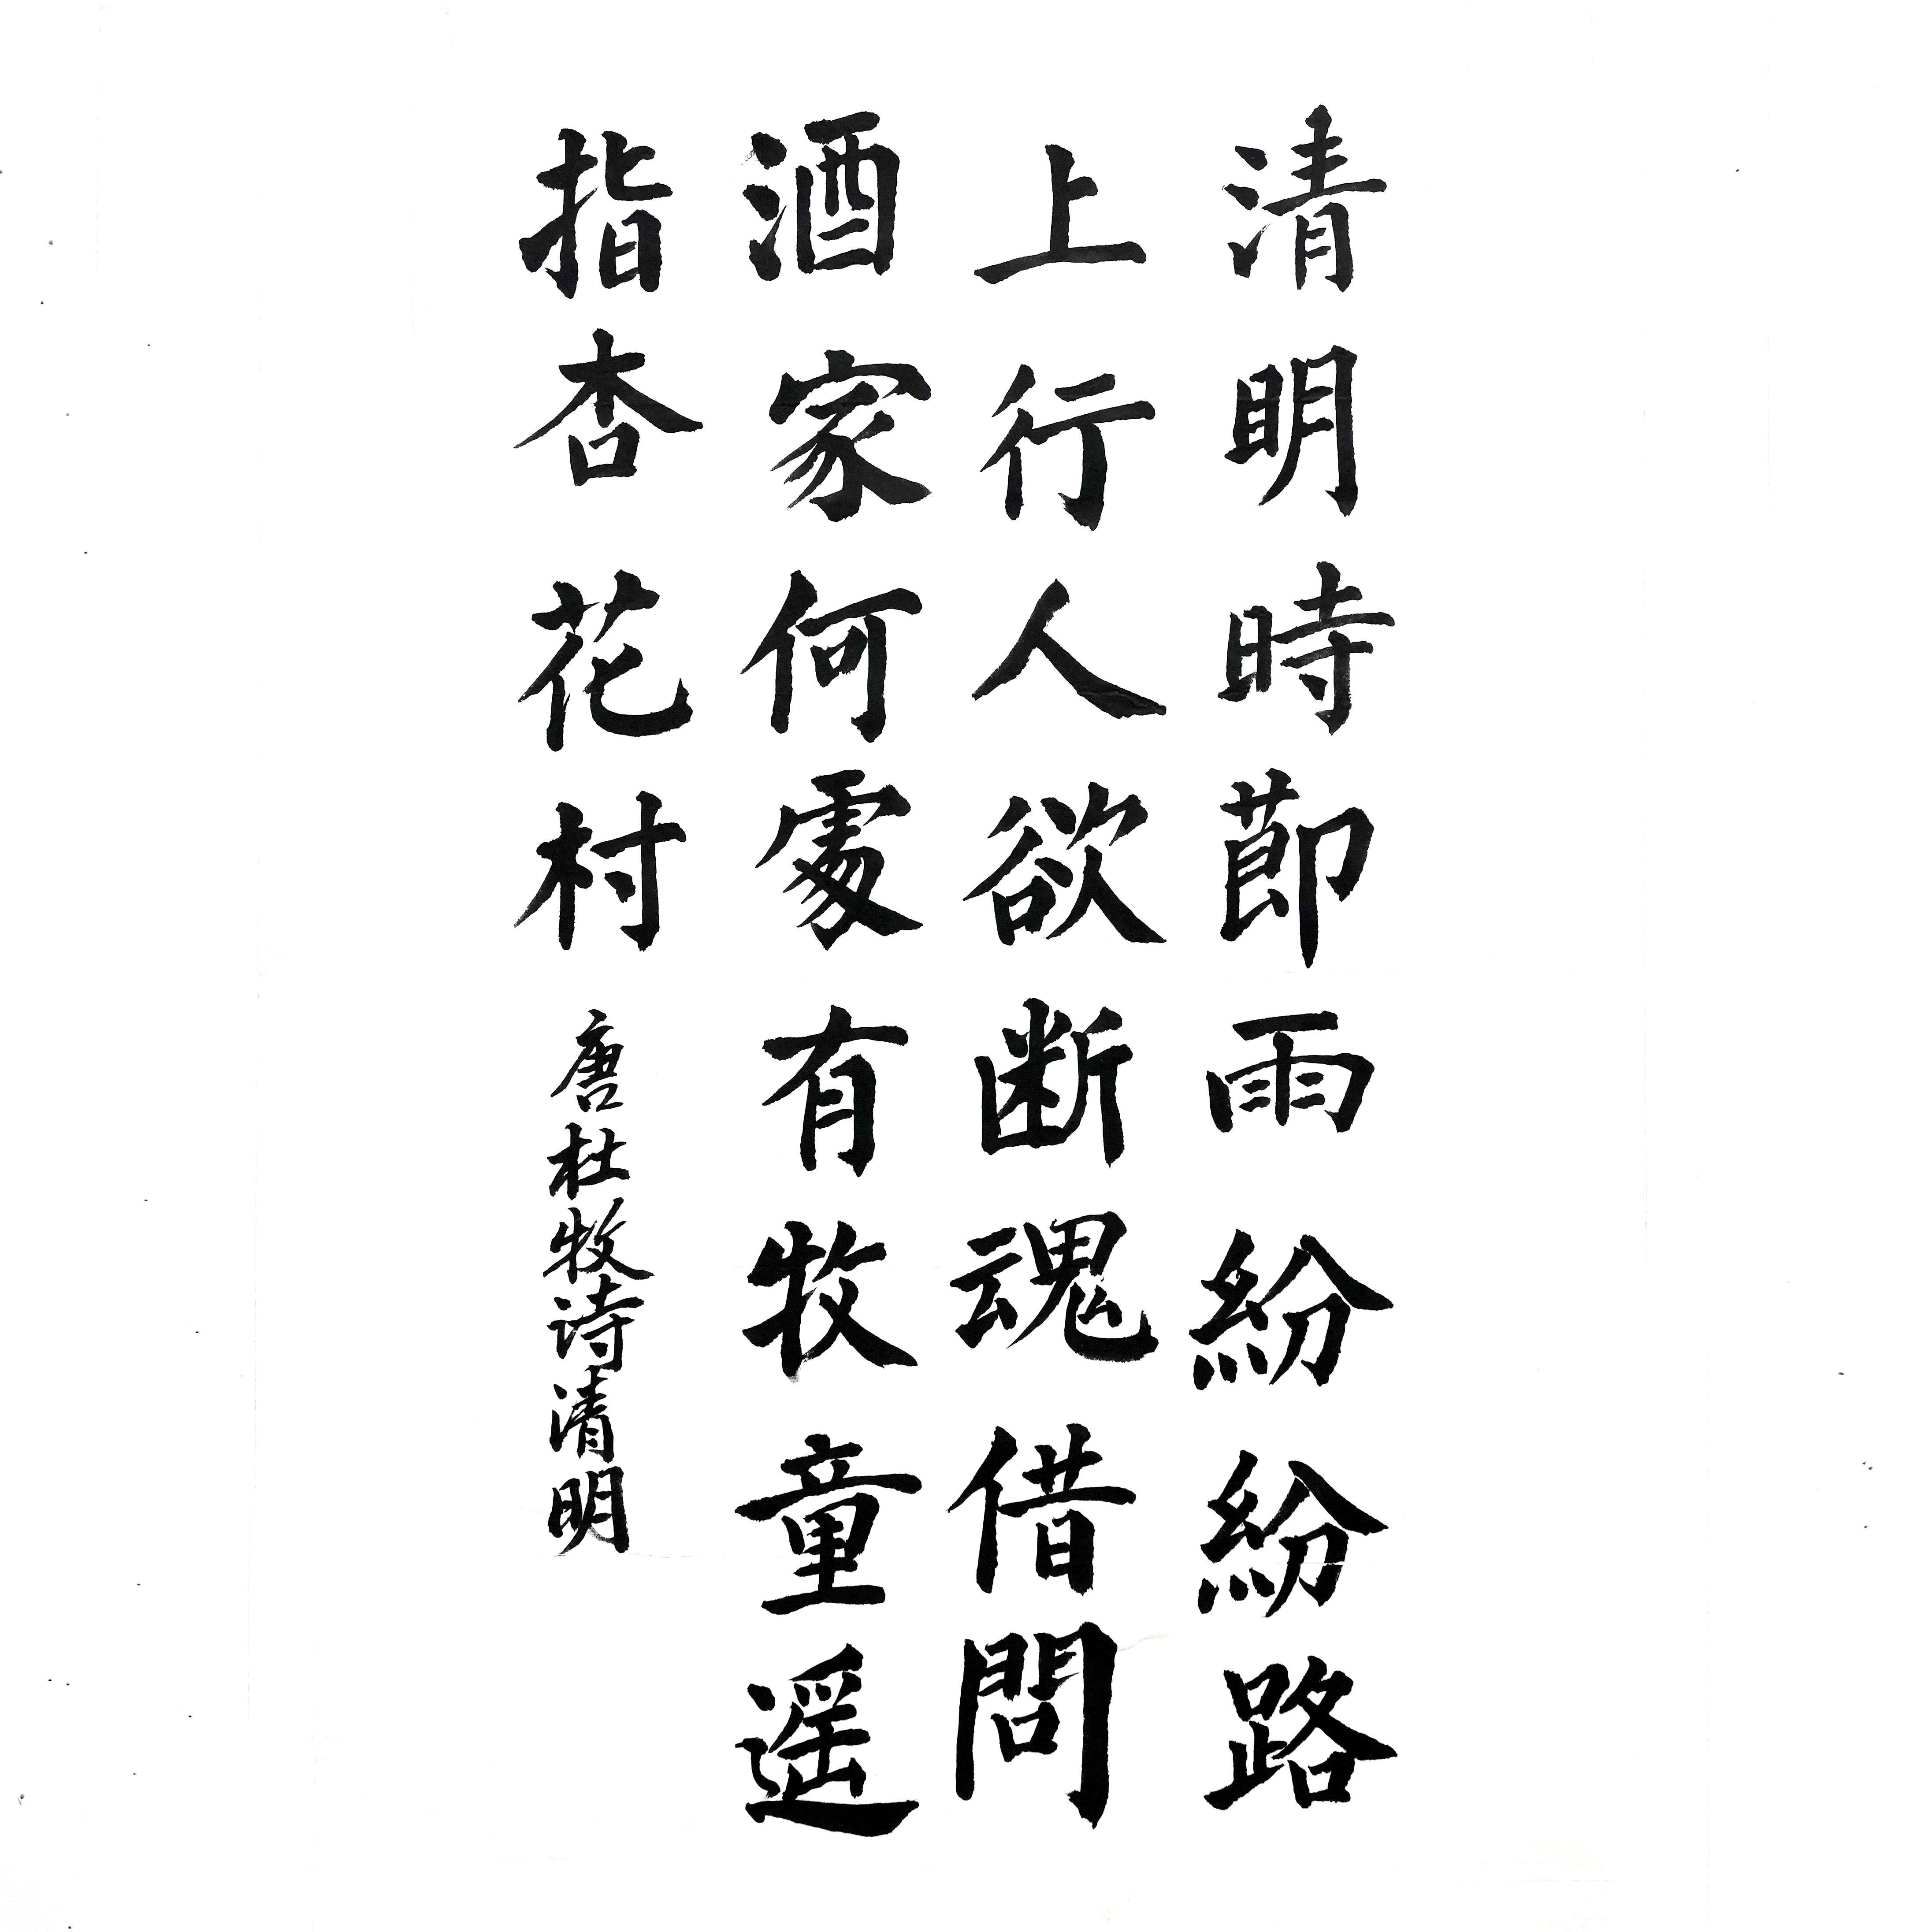 清明時節雨紛紛路
上行人欲断魂借問
酒家何處有牧童遥
指杏花村
唐杜牧诗清明